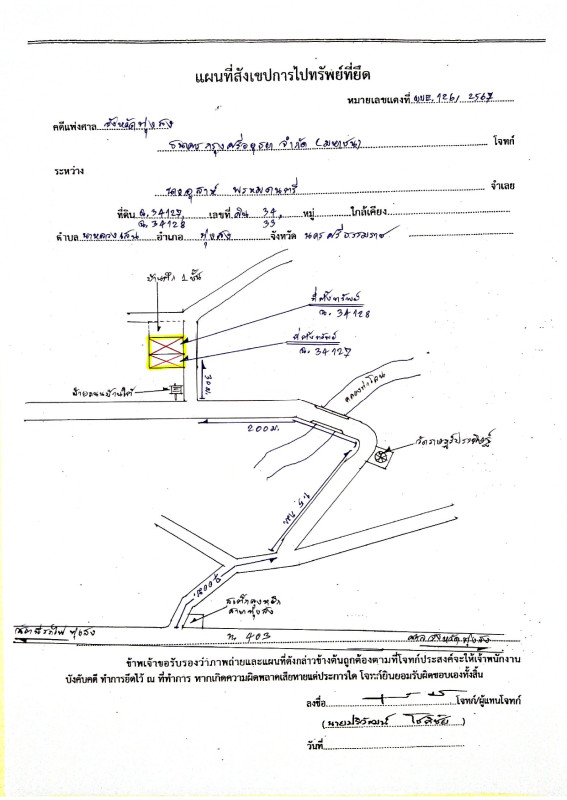 แผนที่สังเขปการไปทรัพย์ที่ยึด
หมายเลขแดงที่ ผบE. 126/ 2567
คดีแพ่งศาล จังหวัดทุ่งสง
ธนาคารกรุงศรีอยุธยา จำกัด (มหาชน) โจทก์
ระหว่าง
จำเลย
ที่ดิน ฉ. 34127, เลขที่ดิน 34, หมู่ ใกล้เคียง
ฉ. 34128 33
ตำบล นาหลวงเสน อำเภอ ทุ่งสง จังหวัด นครศรีธรรมราช
บ้านตึก 1 ชั้น
ที่ตั้งทรัพย์
ฉ. 34128
ที่ตั้งทรัพย์
ฉ. 34127
30 ม.
คลองท่าโลน
200 ม.
วัดราษฎร์ประดิษฐ์
ทุ่งสง
ถ. 403
ศาลจังหวัดทุ่งสง
สถานีรถไฟทุ่งสง
ข้าพเจ้าขอรับรองว่าภาพถ่ายและแผนที่ดังกล่าวข้างต้นถูกต้องตามที่โจทก์ประสงค์จะให้เจ้าพนักงาน
บังคับคดี ทำการยึดไว้ ณ ที่ทำการ หากเกิดความผิดพลาดเสียหายแต่ประการใด โจทก์ยินยอมรับผิดชอบเองทั้งสิ้น
ลงชื่อ โจทก์/ผู้แทนโจทก์
วันที่